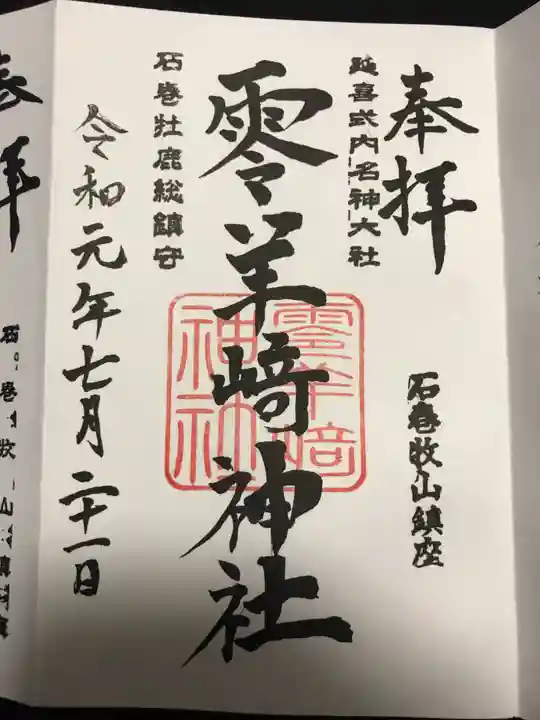 奉拝
石巻牧山鎮座
延喜式内名神大社
零羊﨑神社
零羊﨑
神社
石巻牡鹿総鎮守
令和元年七月二十一日